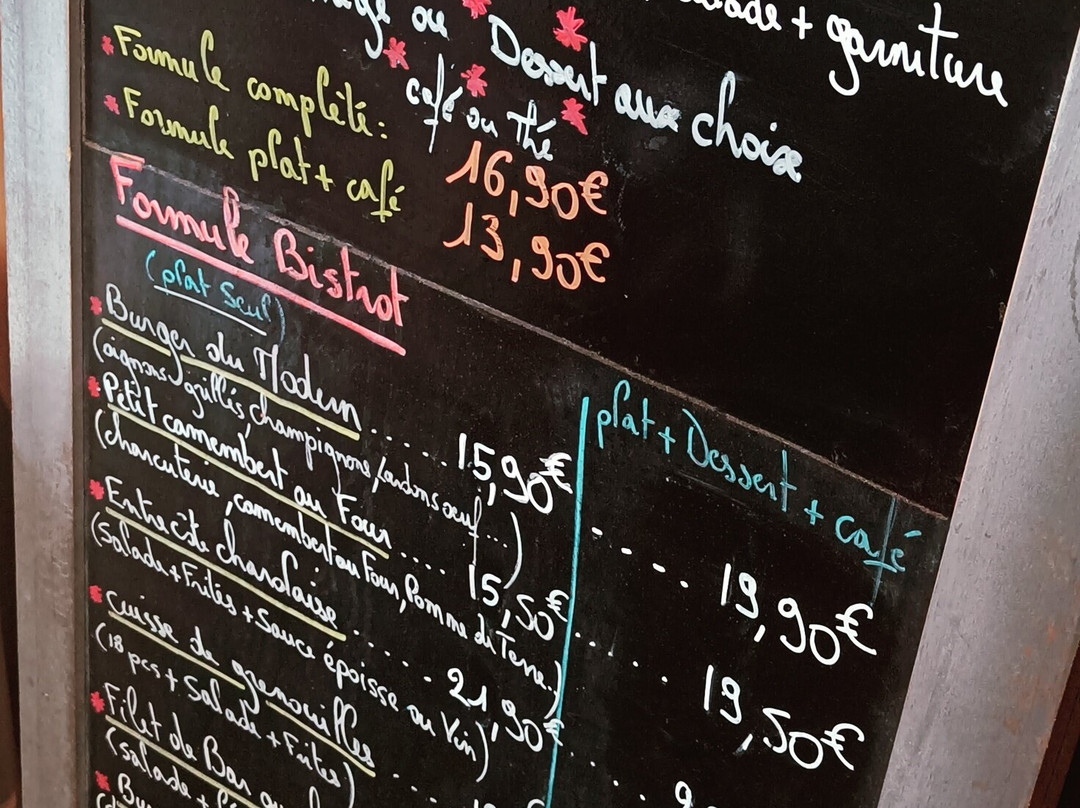 + garniture
ou Dessert aux choix
café ou Thé
* Formule complèté: 16,90€
* Formule plat + café 13,90€
Formule Bistrot
(plat seul)
plat + Dessert + café
* Burger du Modern .... 15,90€ ..... 19,90€
(oignons grillés, champignons, lardons oeuf...)
* Petit camembert au Four .... 15,50€ ..... 19,50€
(charcuterie, camembert au Four, Pomme de Terre..)
* Entrecôte charolaise ..... 21,90€
(Salade + Frites + Sauce époisse ou Vin)
* cuisse de grenouilles
(18 pcs + Salade + Frites)
* Filet de Bar
(salade +